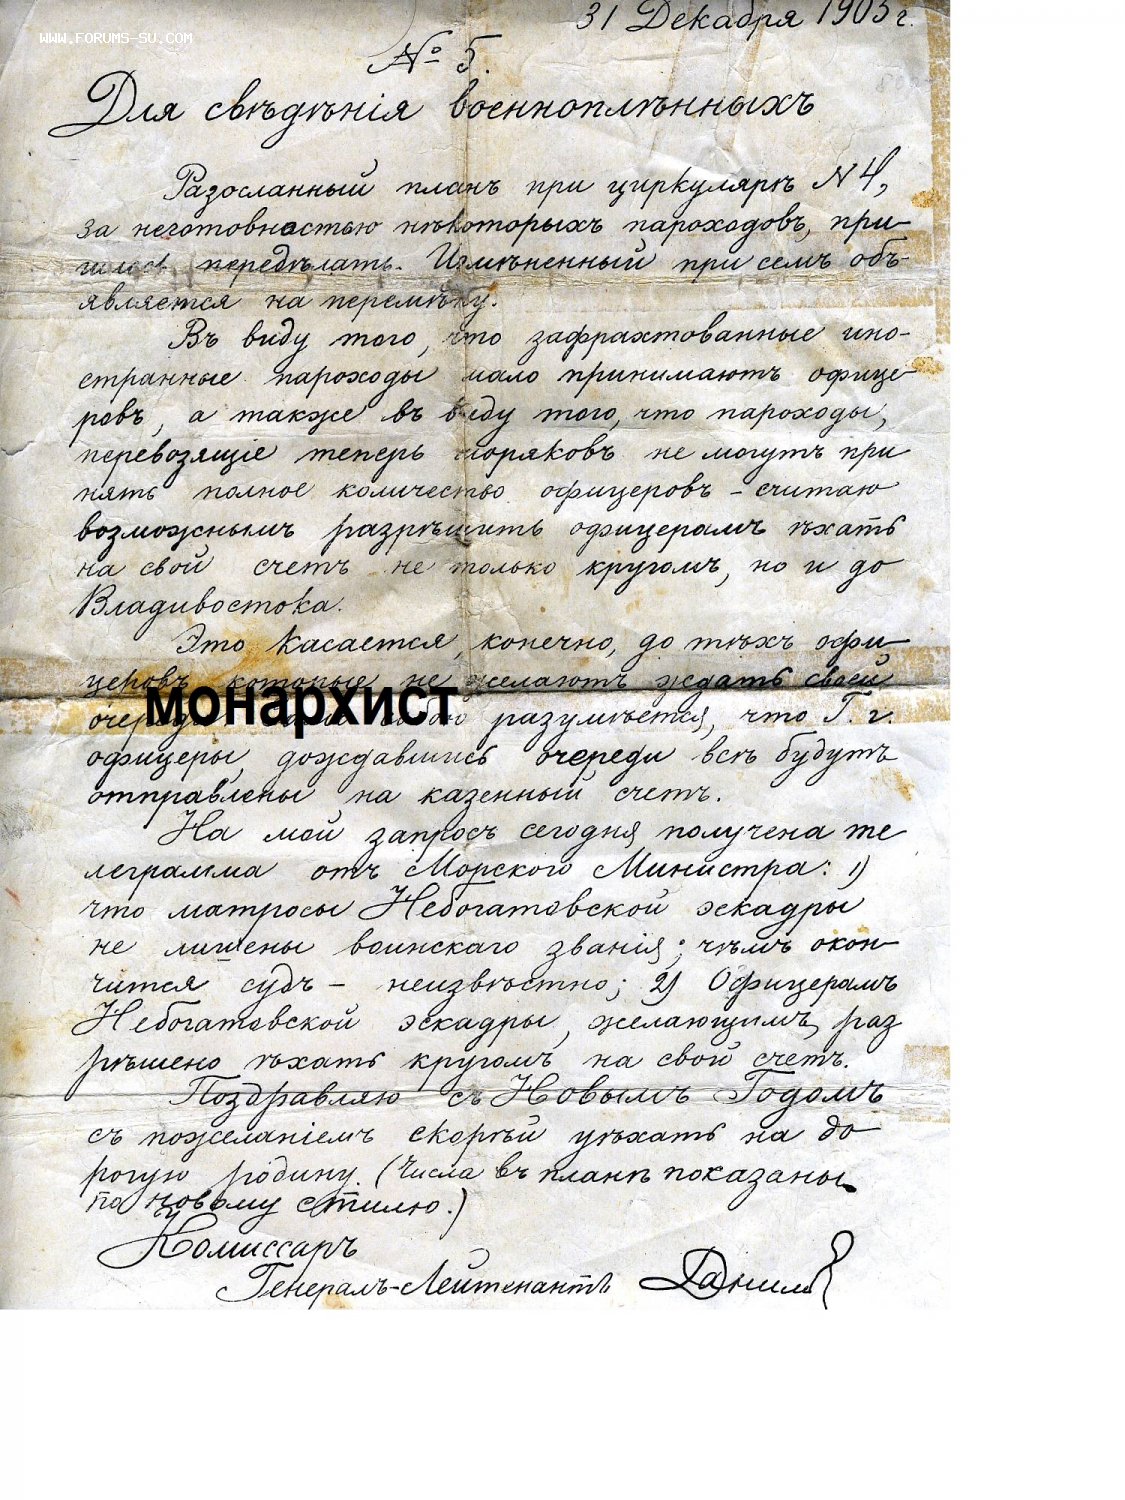 31 Декабря 1905 г.
WWW.FORUMS-SU.COM
№ 5.
Для свѣдѣнія военноплѣнныхъ
Разосланный планъ при циркулярѣ N 4,
за неготовностью нѣкоторыхъ пароходовъ, при-
шлось передѣлать. Измѣненный при семъ объ-
является на перемѣну.
Въ виду того, что зафрахтованные ино-
странные пароходы мало принимаютъ офице-
ровъ, а также въ виду того, что пароходы,
перевозящіе теперь моряковъ не могутъ при
нять полное количество офицеровъ – считаю
возможнымъ разрѣшить офицерамъ ѣхать
на свой счетъ не только кругомъ, но и до
Владивостока.
Это касается, конечно, до тѣхъ офи-
церовъ которые не желаютъ ждать своей
монархист
разумѣется, что Г. г.
офицеры, дождавшись очереди всѣ будутъ
отправлены на казенный счетъ.
На мой запросъ сегодня получена те
леграмма отъ Морского Министра: 1)
что матросы Небогатовской эскадры
не лишены воинскаго званія; чѣмъ окон-
чится судъ – неизвѣстно; 2) Офицерамъ
Небогатовской эскадры, желающимъ, раз
рѣшено ѣхать кругомъ на свой счетъ.
Поздравляю съ Новымъ Годомъ
съ пожеланіемъ скорѣй уѣхать на до
рогую родину. (Числа въ планѣ показаны
по новому стилю.)
Комиссаръ
Генералъ-Лейтенантъ Данилов